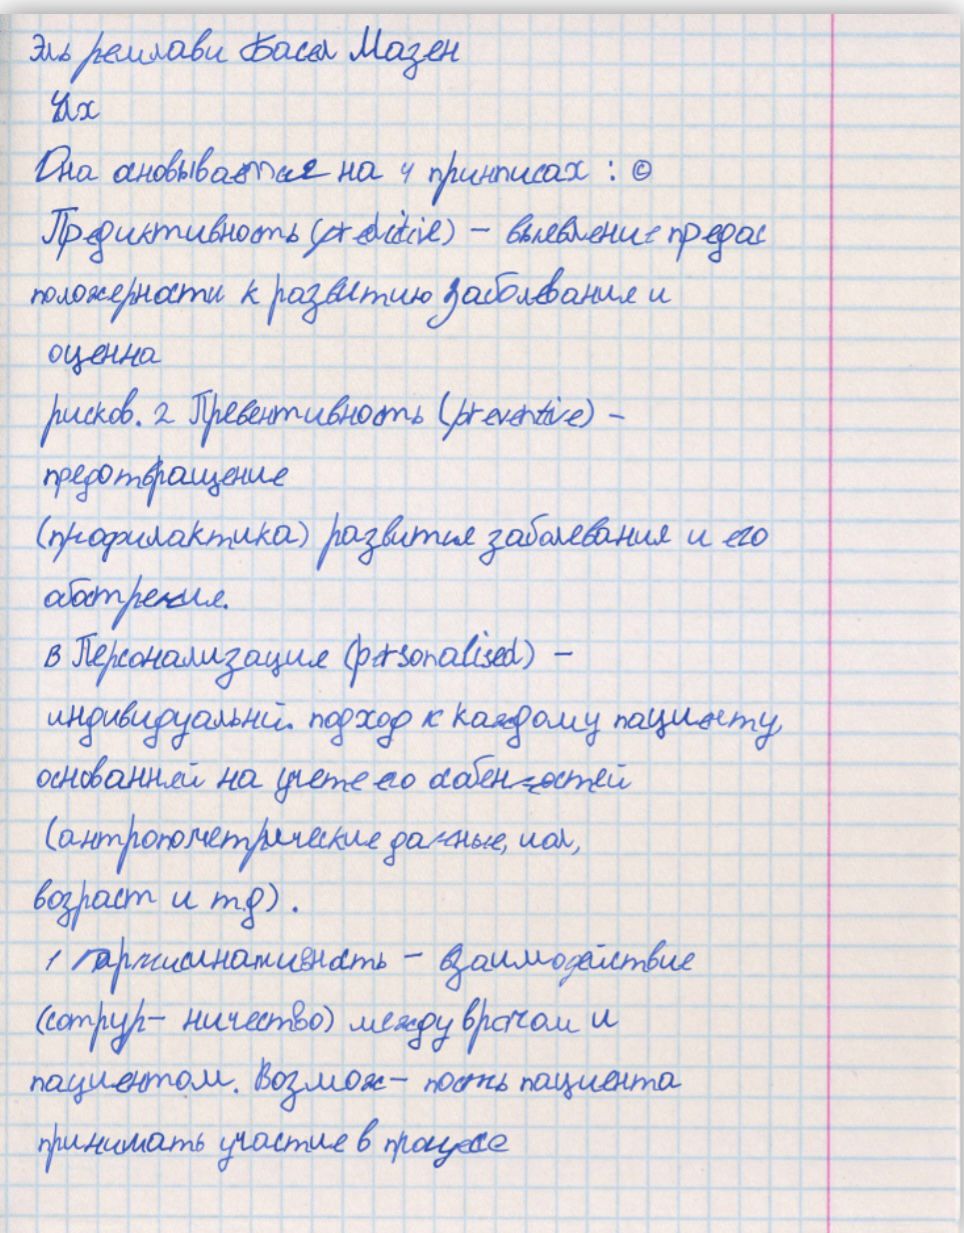 Эль ремлави Басел Мазен
Их
Она основывается на 4 принписах : ©
Предиктивность (predictive) – вылевление предас
положерности к развитию заболевания и
оценна
рисков. 2 Превентивность (preventive) –
предотвращение
(профилактика) развития заболевания и его
абострения.
в Персонализация (personalised) –
индивидуальнй. подход к каждому пациенту,
основаннй на учете его особенностей
(антропометрические данные, иол,
возраст и т.д) .
1 Партисинативность – взаимодействие
(сотрур– ничество) между врачом и
пациентом. Возмож– пость пациента
принимать участие в процесе